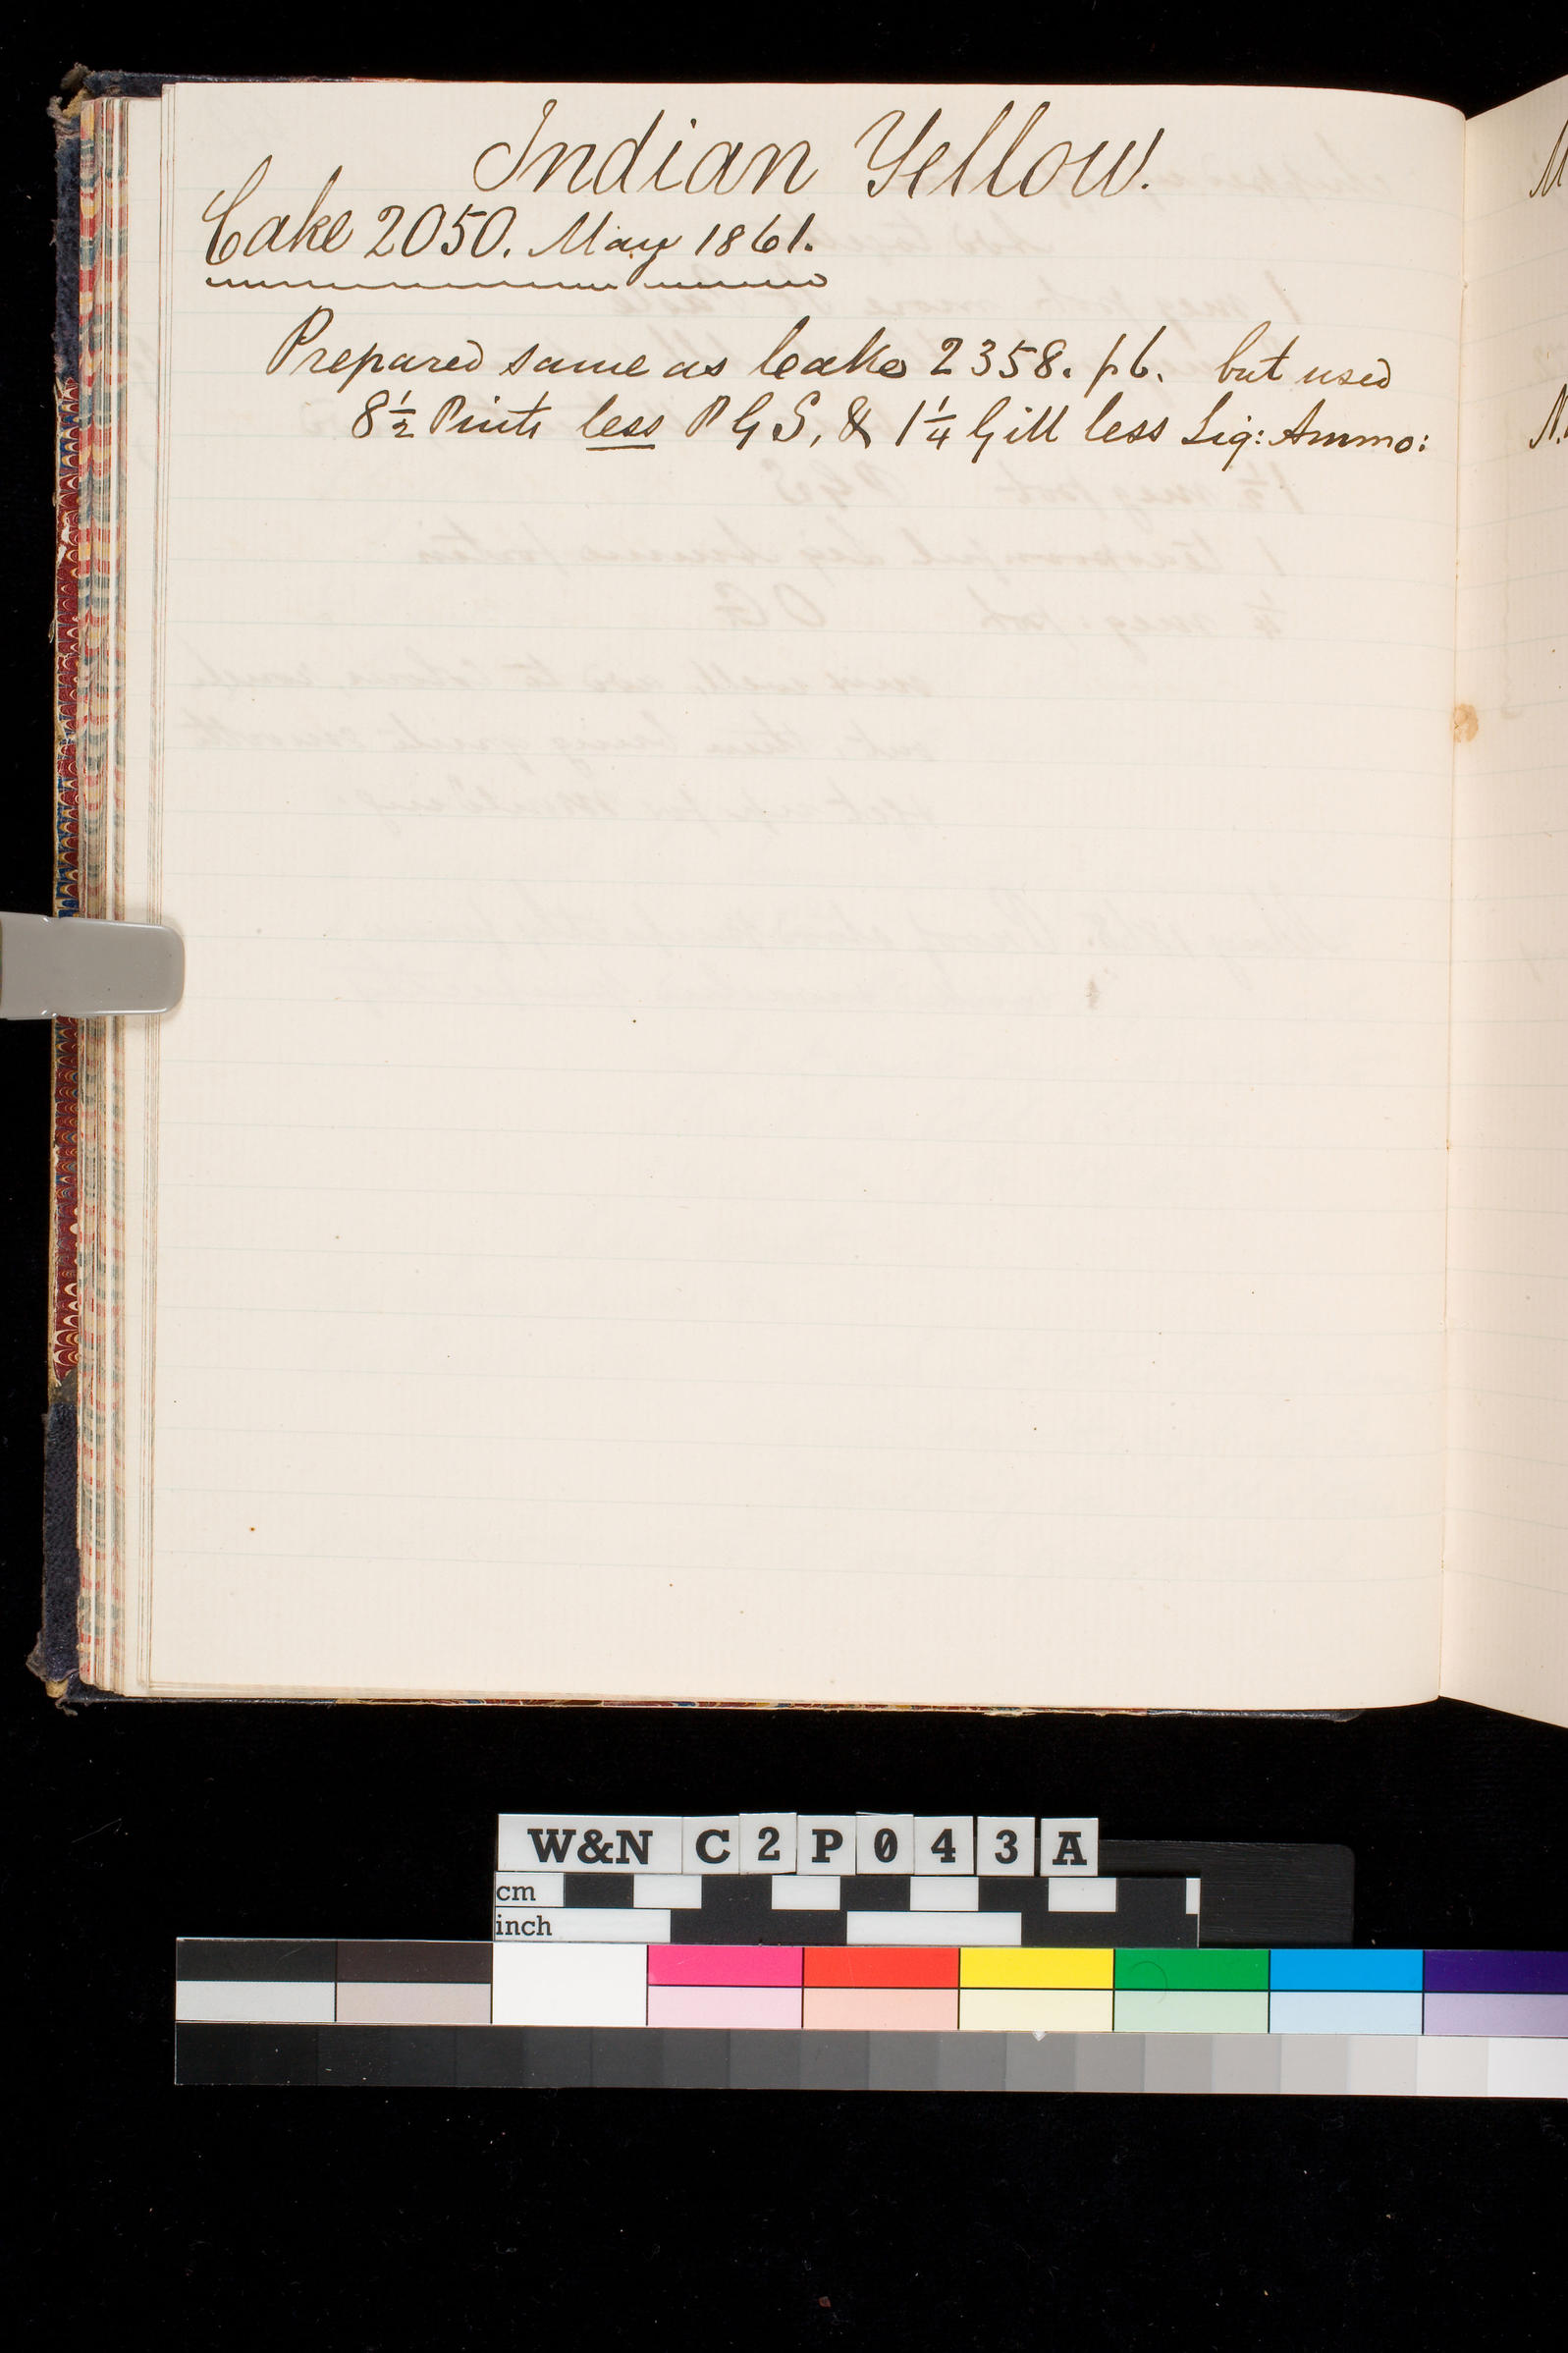 Indian Yellow.
Cake 2050. May 1861.
Prepared same as Cake 2358. p6. but used
8½ Pints less P G S, & 1¼ Gill less Liq: Ammo:
M
N.
W&N C2P043A
cm
inch